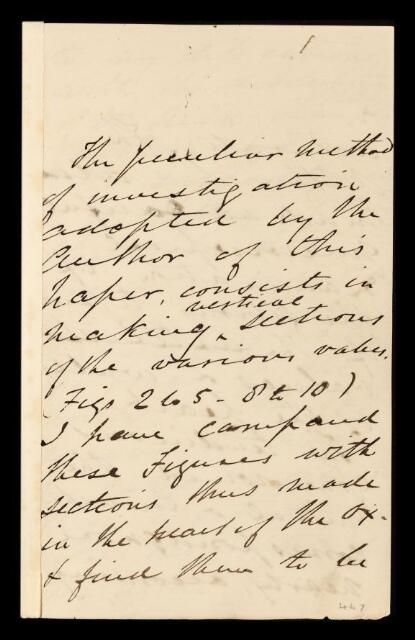 1
The peculiar method
of investigation
adopted by the
Author of this
paper, consists in
vertical
making ‸ sections
of the various valves.
(Figs 2 to 5 - 8 to 10)
I have compared
these Figures with
sections thus made
in the heart of the Ox -
& find them to be
447